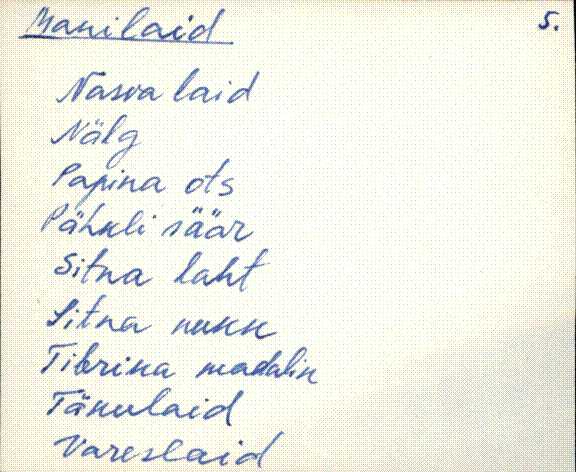 Manilaid 5.
Nasva laid
Nälg
Papina ots
Pähkli säär
Sitna laht
Sitna nukk
Tibrika madalik
Tänulaid
Vareslaid